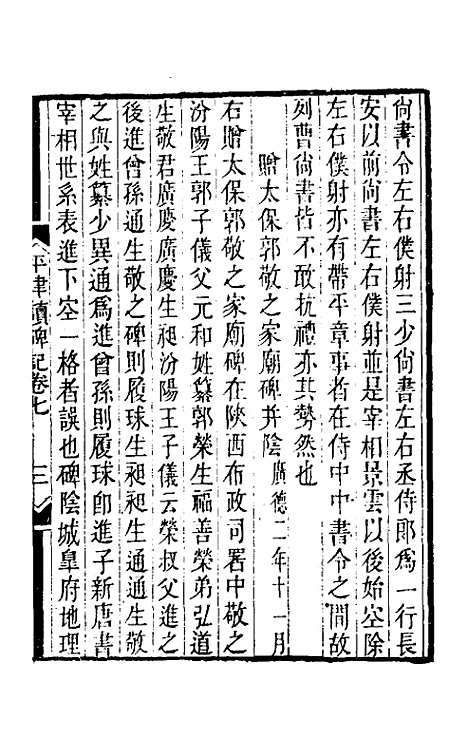 尙書令左右僕射三少尙書左右丞侍郎爲一行長
安以前尙書左右僕射並是宰相景雲以後始空除
左右僕射亦有帶平章事者在侍中中書令之閒故
列曹尙書皆不敢抗禮亦其勢然也
贈太保郭敬之家廟碑并陰廣德二年十一月
右贈太保郭敬之家廟碑在陝西布政司署中敬之
汾陽王郭子儀父元和姓纂郭榮生福善榮弟弘道
生敬君廣慶廣慶生昶汾陽王子儀云榮叔父進之
後進曾孫通生敬之碑則履球生昶昶生通通生敬
之與姓纂少異通爲進曾孫則履球卽進子新唐書
宰相世系表進下空一格者誤也碑陰城皐府地理
平津讀碑記卷七
三